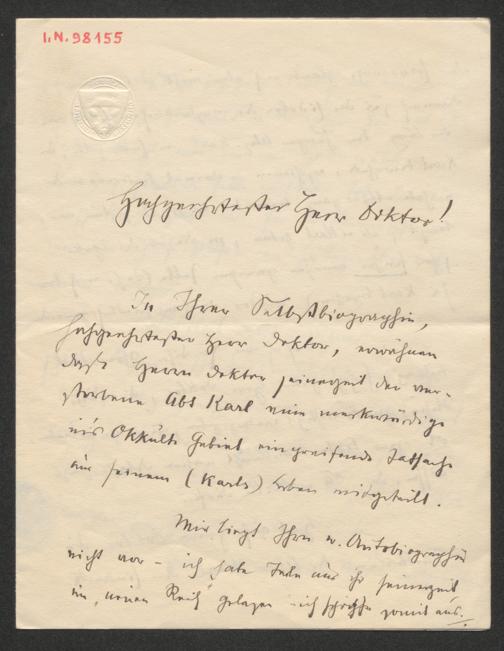 I.N. 98155
Hochgeehrtester Herr Doktor!
In Ihrer Selbstbiographie,
hochgeehrtester Herr Doktor, erwähnen
dass Herrn Doktor seinerzeit der ver-
storbene Abt Karl eine merkwürdige
in's Okkulte Gebiet eingreifende Tatsache
aus seinem (Karls) Leben mitgeteilt.
Mir liegt Ihre w. Autobiographie
nicht vor – ich habe Teile aus ihr seinerzeit
im neuen Reich gelesen – ich somit aus.